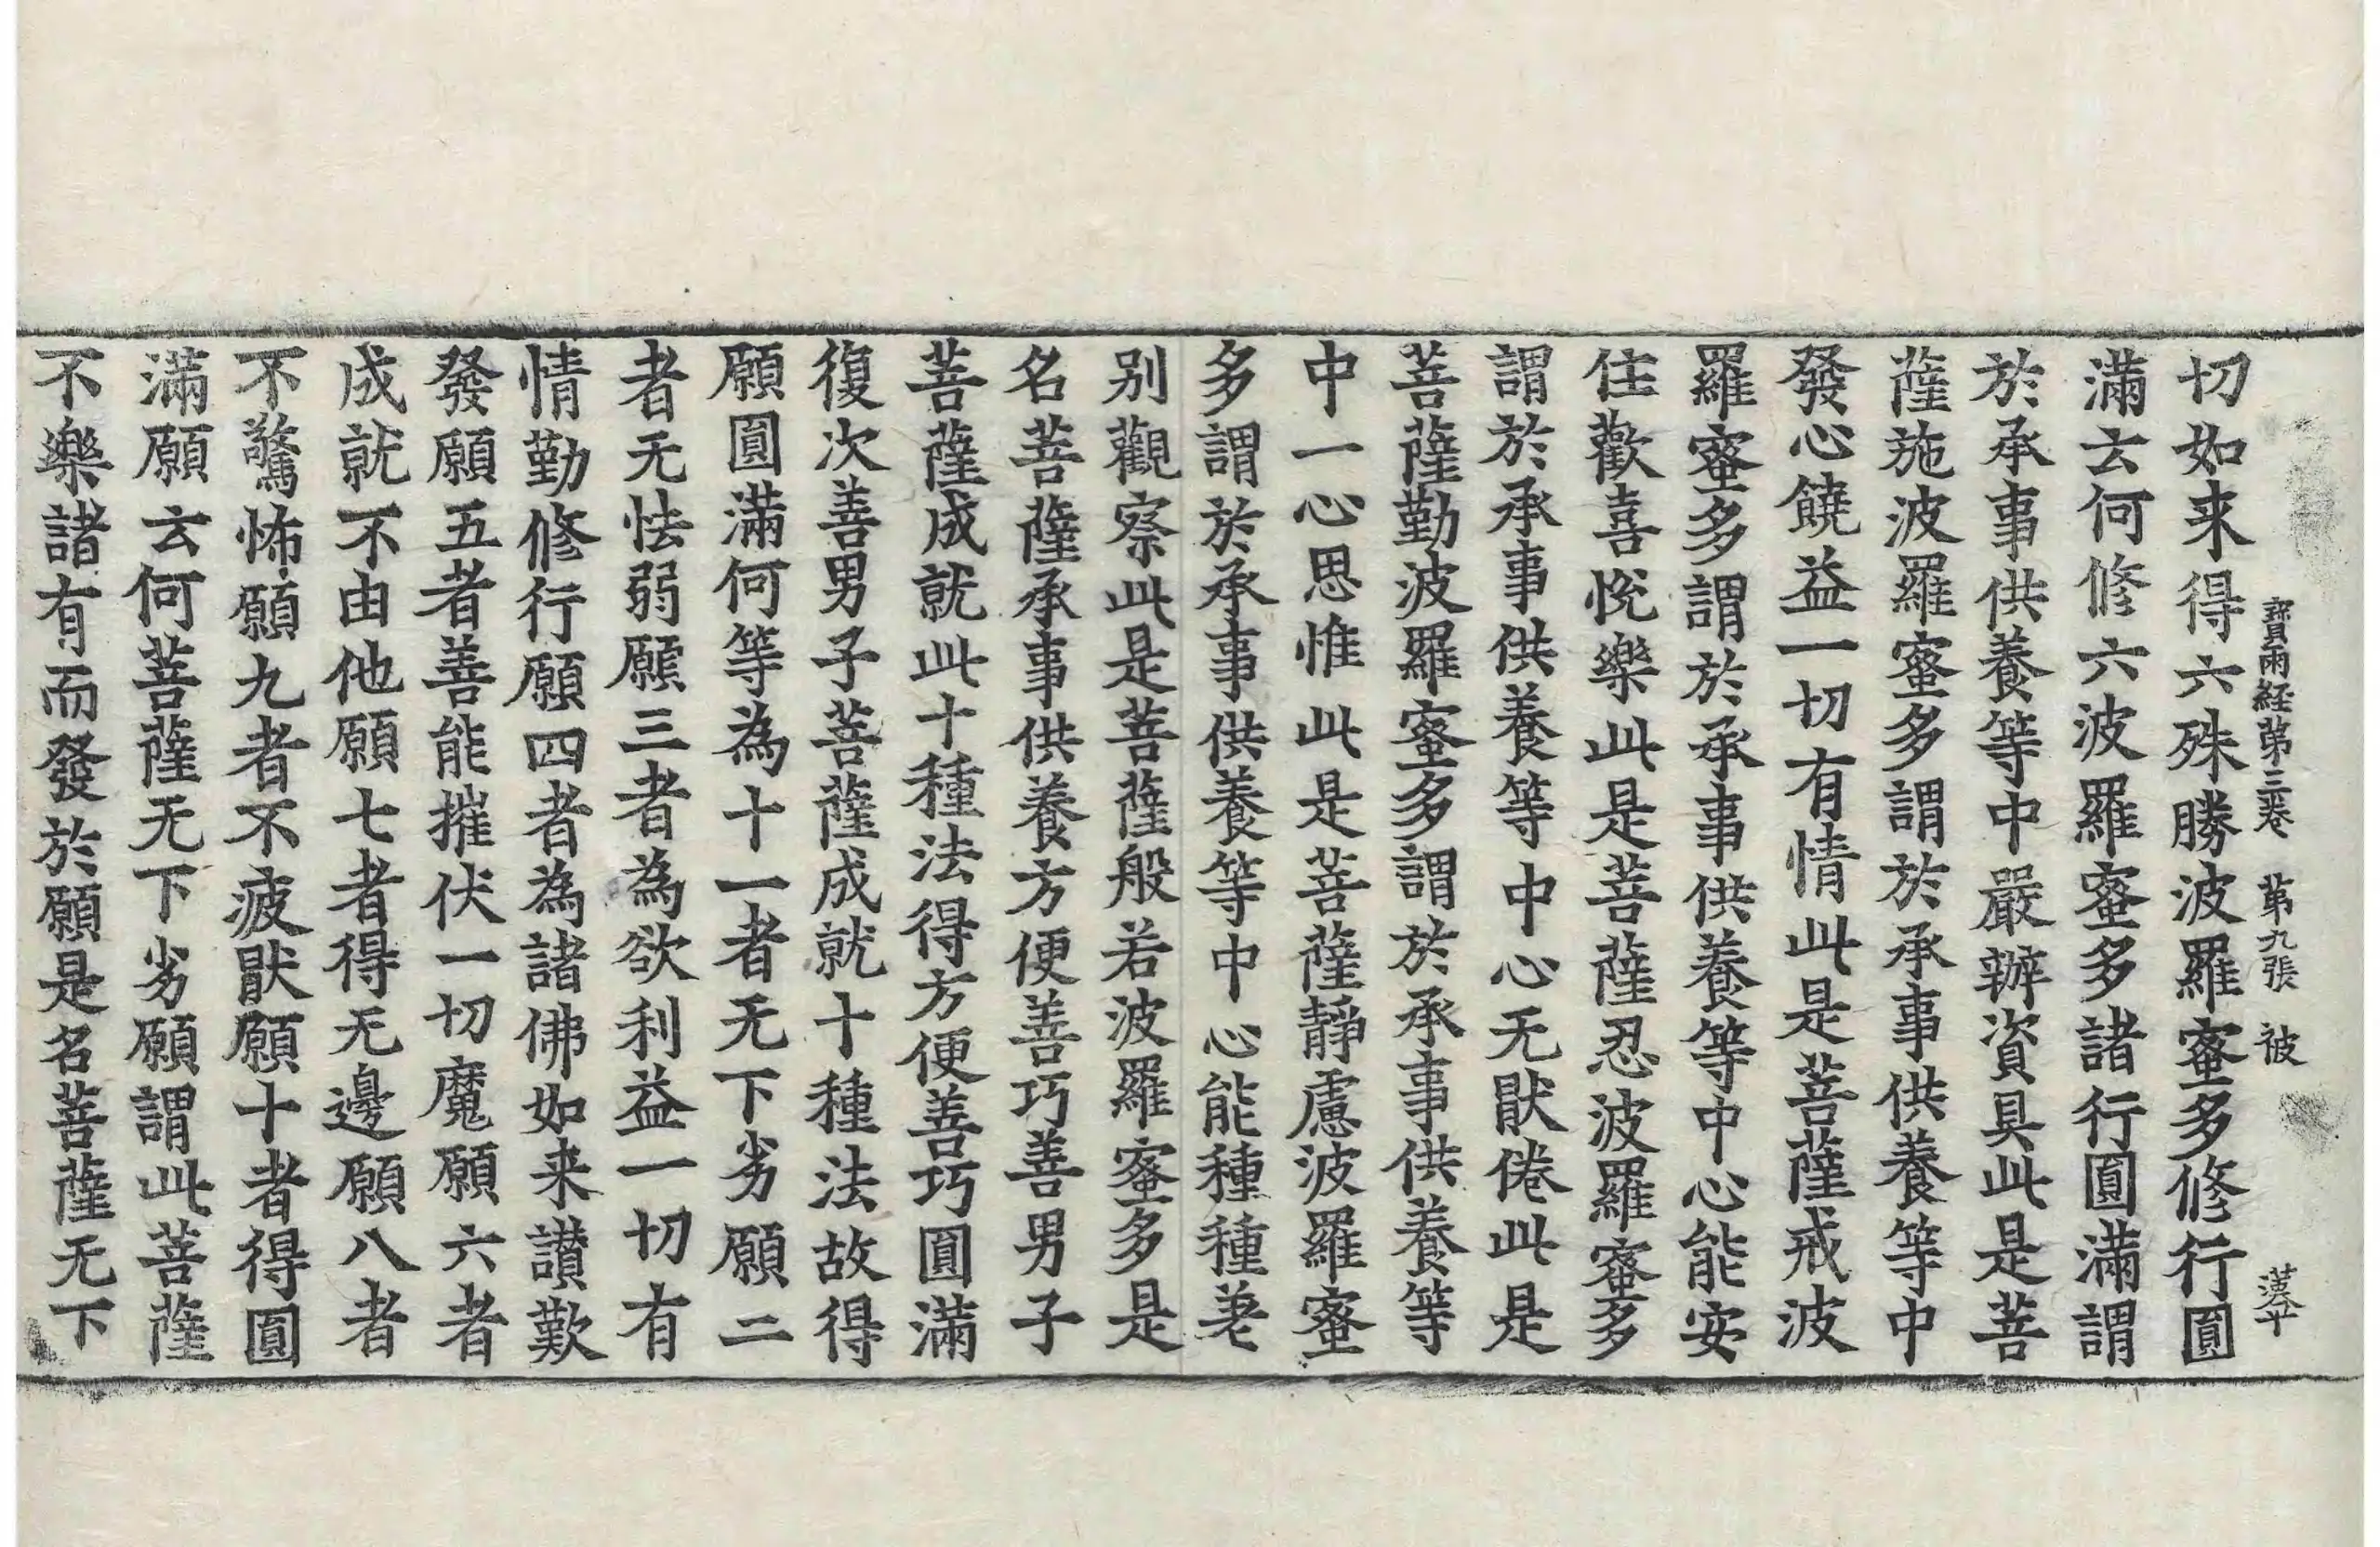 寶雨経第三卷 第九張 被 漢平
切如来得六殊勝波羅蜜多修行圓
滿云何修六波羅蜜多諸行圓滿謂
於承事供養等中嚴辦資具此是菩
薩施波羅蜜多謂於承事供養等中
發心饒益一切有情此是菩薩戒波
羅蜜多謂於承事供養等中心能安
住歡喜悅樂此是菩薩忍波羅蜜多
謂於承事供養等中心无猒倦此是
菩薩勤波羅蜜多謂於承事供養等
中一心思惟此是菩薩靜慮波羅蜜
多謂於承事供養等中心能種種差
別觀察此是菩薩般若波羅蜜多是
名菩薩承事供養方便善巧善男子
菩薩成就此十種法得方便善巧圓滿
復次善男子菩薩成就十種法故得
願圓滿何等為十一者无下劣願二
者无怯弱願三者為欲利益一切有
情勤修行願四者為諸佛如来讃歎
發願五者善能摧伏一切魔願六者
成就不由他願七者得无邊願八者
不驚怖願九者不疲猒願十者得圓
滿願云何菩薩无下劣願謂此菩薩
不樂諸有而發於願是名菩薩无下